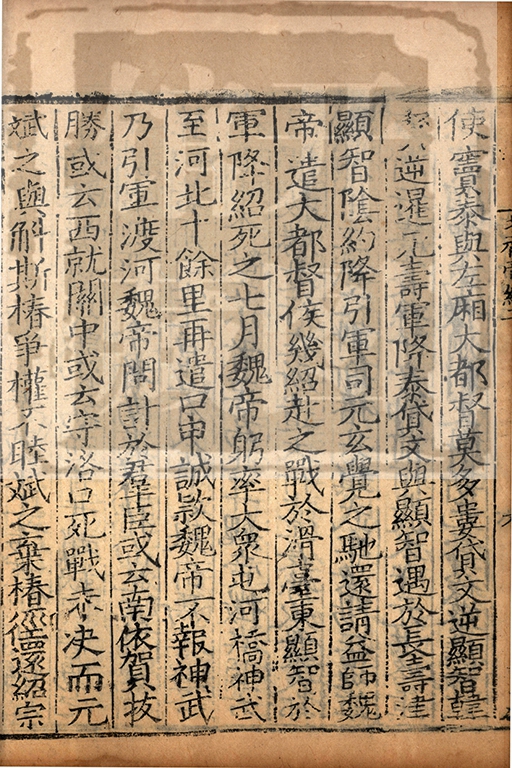 使竇泰與左廂大都督莫多婁貸文逆顯智韓
賢逆暹元壽軍降泰貸文與顯智遇於長壽津
顯智陰約降引軍司元玄覺之馳還請益師魏
帝遣大都督侯幾紹赴之戰於滑臺東顯智於
軍降紹死之七月魏帝躬率大衆屯河橋神武
至河北十餘里再遣口申誠款魏帝不報神武
乃引軍渡河魏帝問計於羣臣或云南依賀拔
勝或云西就關中或云守洛口死戰未决而元
斌之與斛斯椿爭權不睦斌之棄椿徑還紹宗